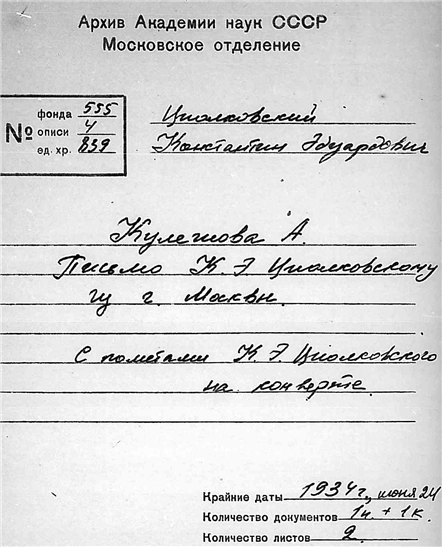 Архив Академии наук СССР
Московское отделение
№ фонда 555
описи 4
ед. хр. 839
Циолковский
Константин Эдуардович
Кулешова А.
Письмо К. Э. Циолковскому
из г. Москвы.
С пометами К. Э. Циолковского
на конверте.
Крайние даты 1934 г., июня 24
Количество документов 1п. + 1к.
Количество листов 2.